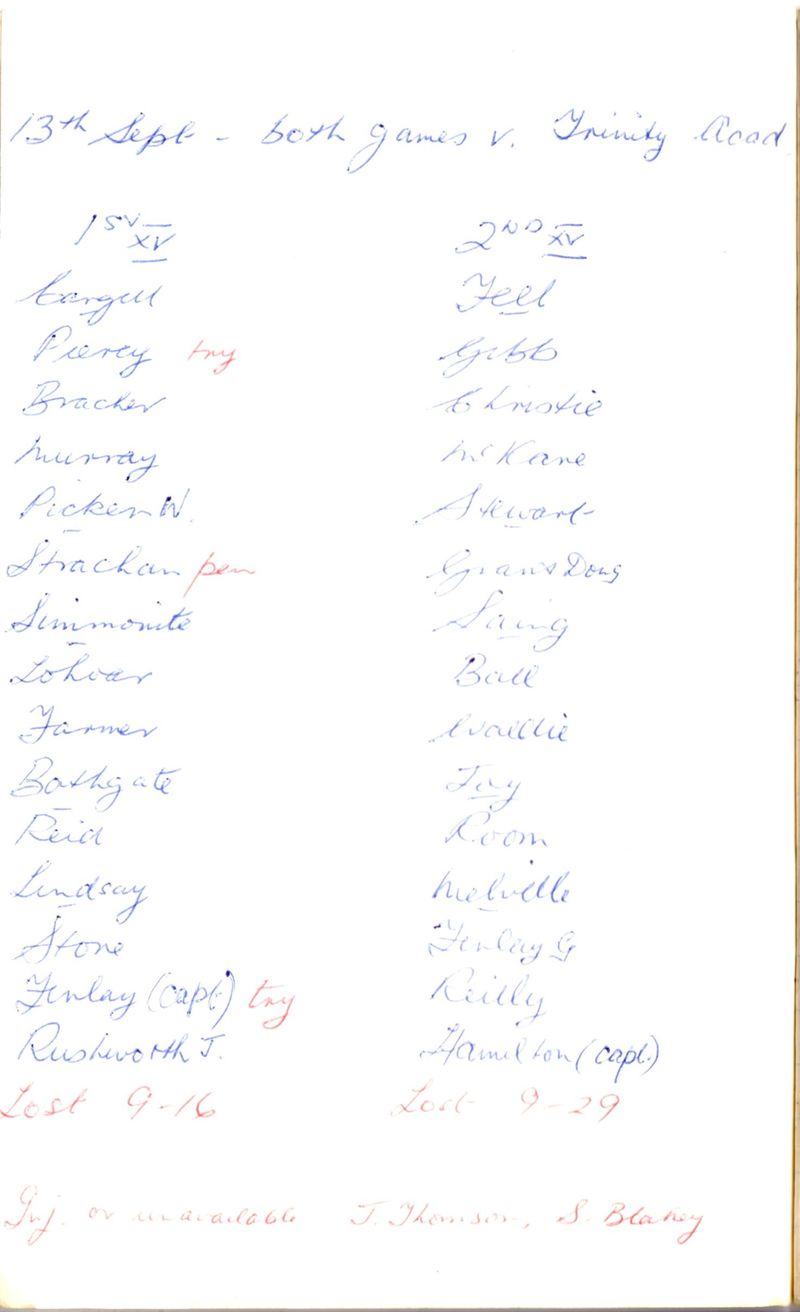 13th Sept - both games v. Trinity Acad
1st XV 2ND XV
Cargill Fell
Piercy try Gibb
Bracher Christie
Murray McKane
Picken W. Stewart
Strachan pen Grant Doug
Simmonite Laing
Lohoar Ball
Farmer Waillie
Bathgate Foy
Reid Room
Lindsay Melville
Stone Finlay G
Finlay (capt) try Reilly
Rushworth J. Hamilton (capt.)
Lost 9-16 Lost 9-29
Inj. or unavailable J. Thomson, S. Blakey